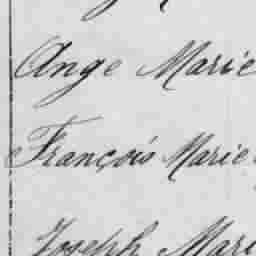 Ange Marie
François Marie
Joseph Mari